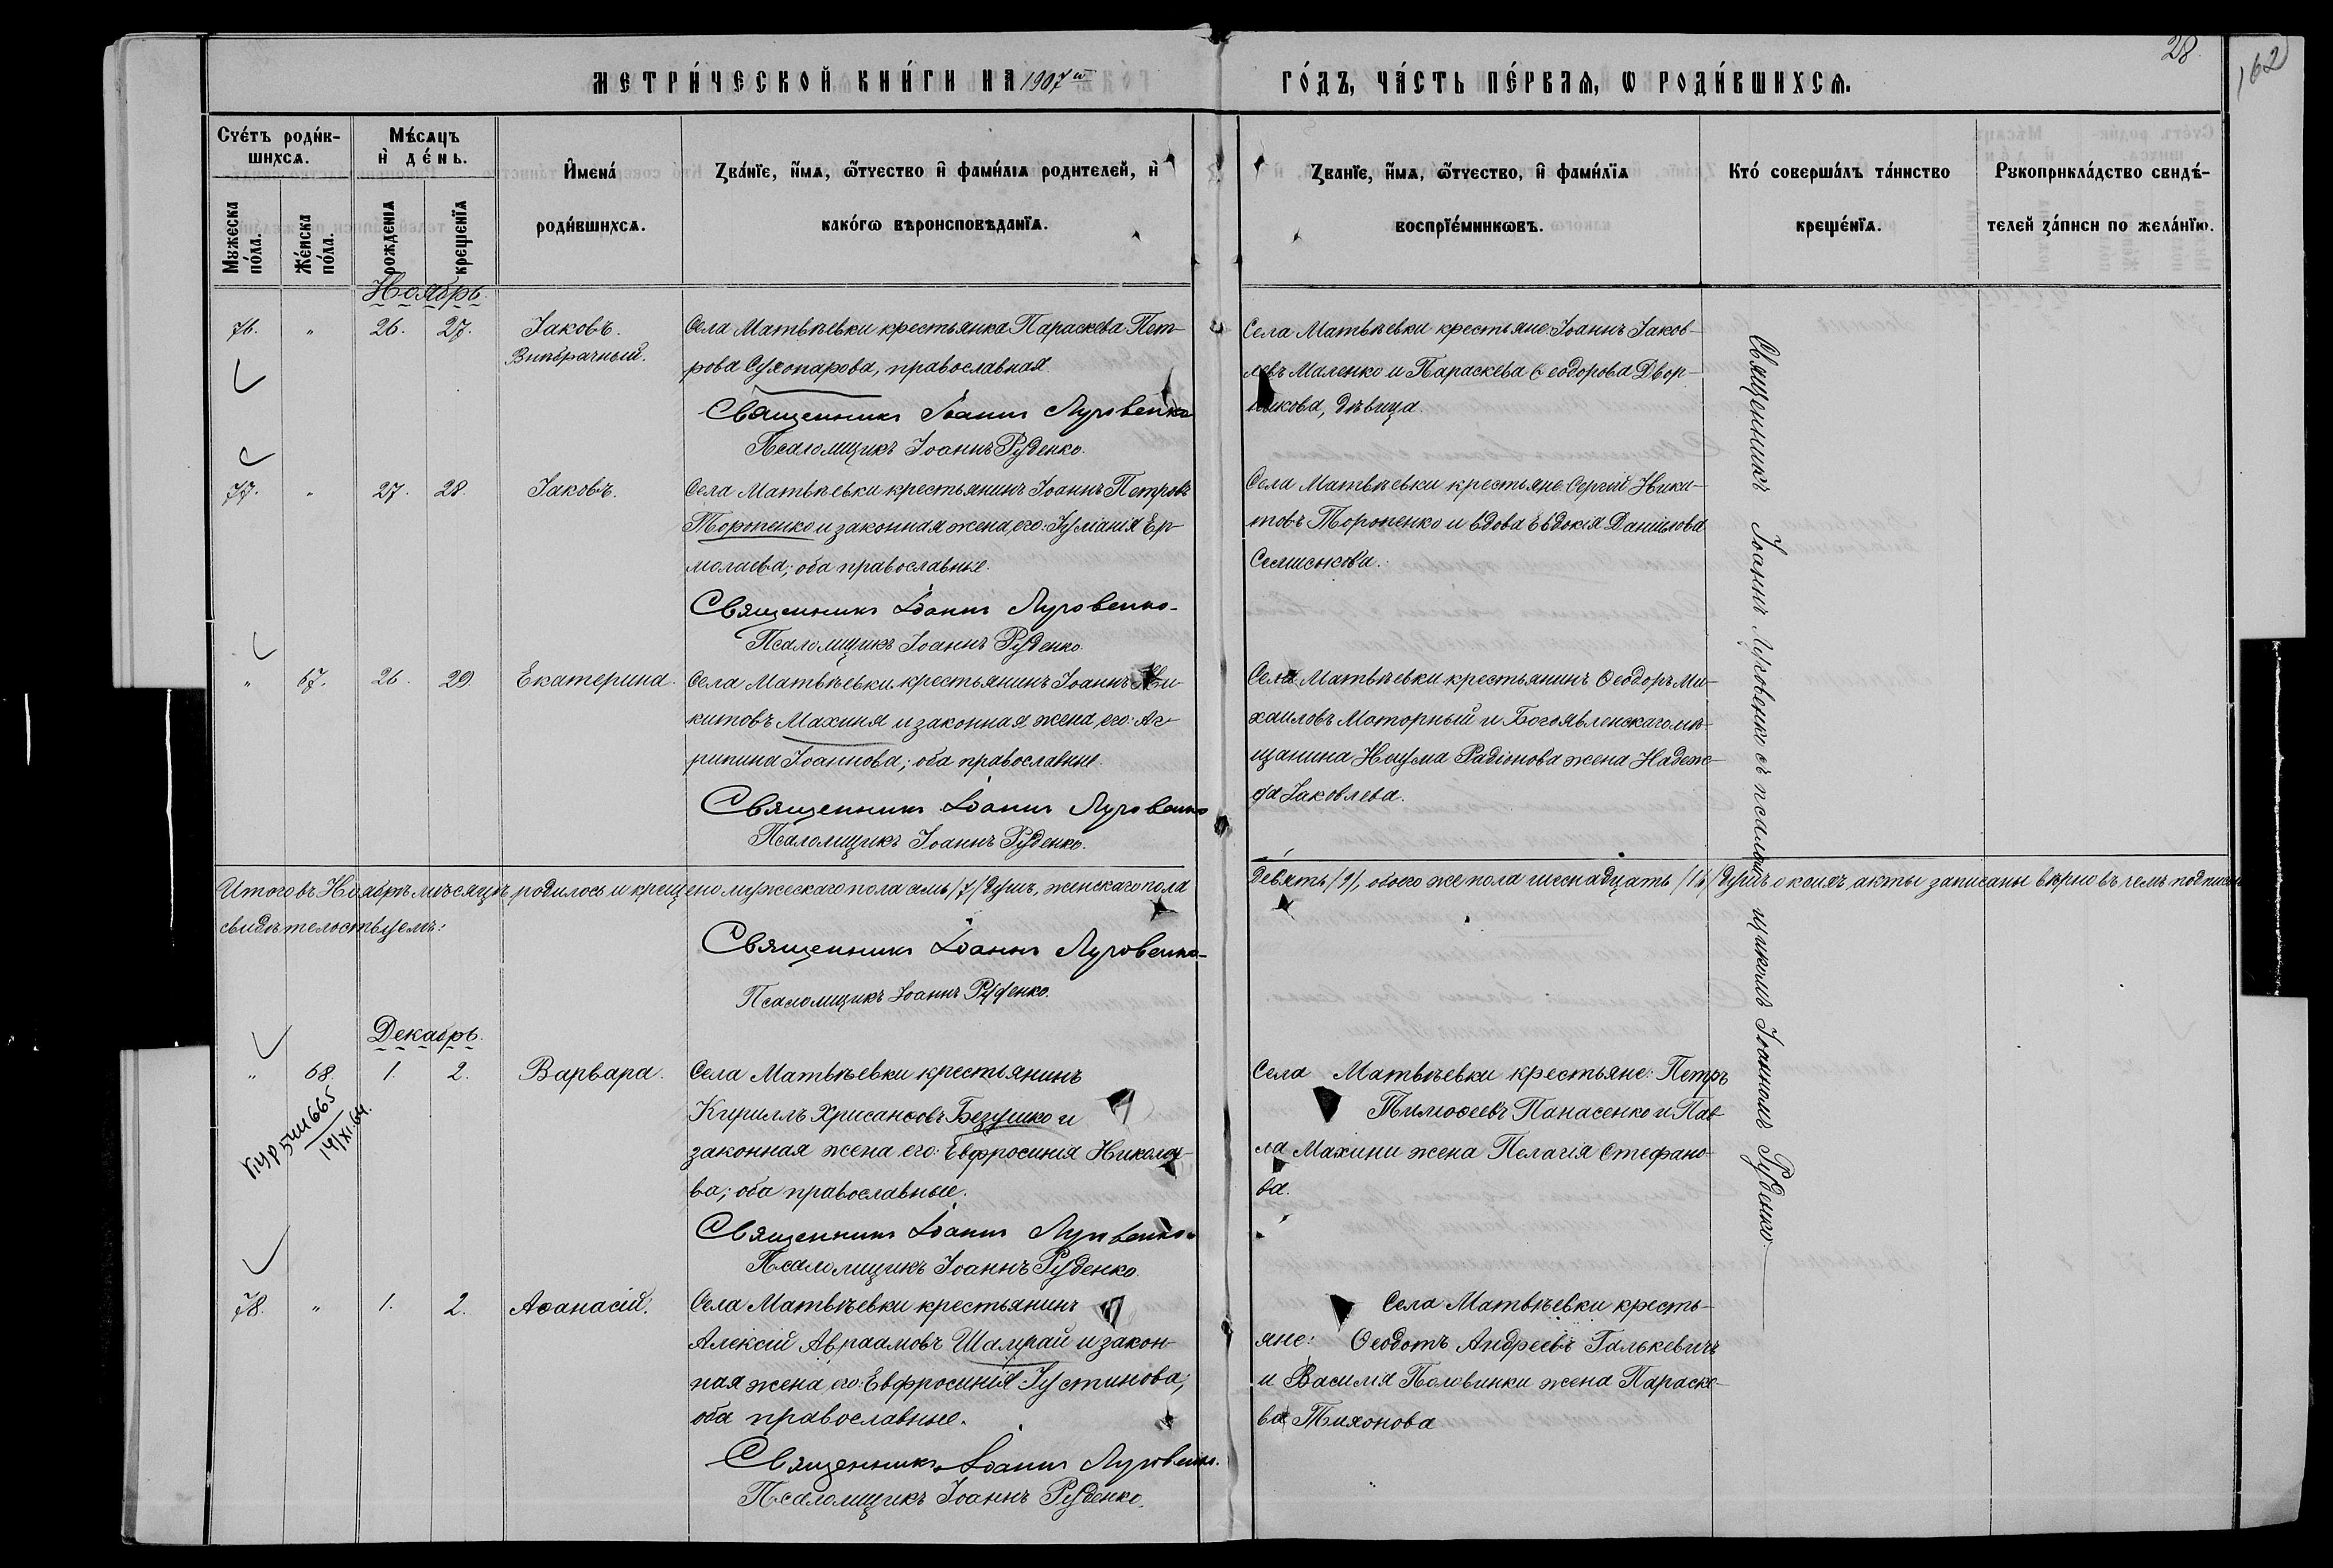 28.
162
МЕТРИ́ЧЕСКОЙ КНИ́ГИ НА 1907 й ГО́ДЪ, ЧА́СТЬ ПЕ́РВАѦ, Ѡ РОДИ́ВШИХСѦ.
Сче́тъ роди́в-
шихсѧ.
Мꙋжеска по́ла.
Же́нска по́ла.
Мѣ́сѧцъ
и҆ де́нь.
рожденїѧ
крещенїѧ
И҆мена́
роди́вшихсѧ.
Зва́нїе, и҆́мѧ, ѻ҆́тчество и҆ фами́лїѧ родителей, и҆
како́гѡ вѣроисповѣ́данїѧ.
Званїе, и҆́мѧ, ѻ҆́тчество, и҆ фами́лїѧ
воспрїе́мникѡвъ.
Кто́ соверша́лъ та́инство
креще́нїѧ.
Рꙋкоприкла́дство свидѣ́-
телей за́писи по жела́нїю.
Ноябрь.
76. " 26. 27. Іаковъ.
Внѣбрачный.
Села Матвѣевки крестьянка Параскева Пет-
рова Сухопарова, православная
Священникъ Іоаннъ Луговенко
Псаломщикъ Іоаннъ Руденко.
Села Матвѣевки крестьяне Іоаннъ Іаков-
левъ Маленко и Параскева Ѳеодорова Двор-
никова, дѣвица.
77. " 27. 28. Іаковъ.
Села Матвѣевки крестьянинъ Іоаннъ Петровъ
Торопенко и законная жена его: Іуліанія Ер-
молаева; оба православные.
Священникъ Іоаннъ Луговенко
Псаломщикъ Іоаннъ Руденко
Села Матвѣевки крестьяне Сергей Ники-
товъ Торопенко и вдова Евдокія Даніилова
" 67. 26. 29. Екатерина.
Села Матвѣевки крестьянинъ Іоаннъ Ни-
китовъ Махиня и законная жена его: Аг-
рипина Іоаннова; оба православные.
Священникъ Іоаннъ Луговенко
Псаломщикъ Іоаннъ Руденко.
Села Матвѣевки крестьянинъ Ѳеодоръ Ми-
хаиловъ Моторный и Богоявленскаго мѣ-
щанина Наума Радіонова жена Надеж-
да Іаковлева.
Итого въ Ноябрѣ мѣсяцѣ родилось и крещено мужескаго пола семь /7/ душъ, женскаго пола
Девять /9/, обоего же пола шеснадцать /16/ душъ о коихъ акты записаны вѣрно въ чемъ подписью
свидѣтельствуемъ:
Священникъ Іоаннъ Луговенко
Псаломщикъ Іоаннъ Руденко.
Декабрь.
" 68. 1. 2. Варвара.
Села Матвѣевки крестьянинъ
Кириллъ Хрисанѳовъ Безушко и
законная жена его: Евфросинія Николае-
ва; оба православные.
Священникъ Іоаннъ Луговенко
Псаломщикъ Іоаннъ Руденко.
Села Матвѣевки крестьяне: Петръ
Тимоѳеевъ Панасенко и Пав-
ла Махини жена Пелагія Стефано-
ва.
14/XI.64.
78. " 1. 2. Аѳанасій.
Села Матвѣевки крестьянинъ
Алексій Авраамовъ Шамрай и закон-
ная жена его: Евфросинія Іустинова;
оба православные.
Священникъ Іоаннъ Луговенко.
Псаломщикъ Іоаннъ Руденко.
Села Матвѣевки кресть-
яне: Ѳеодотъ Андреевъ Галькевичъ
и Василія Половинки жена Параске-
ва Тихонова
Священникъ Іоаннъ Луговенко съ псаломщикомъ Іоанномъ Руденко.